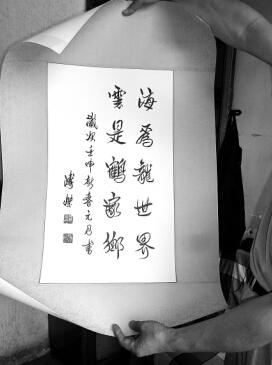 海為龍世界
雲是鶴家鄉
歲次壬申新春元月書
溥傑